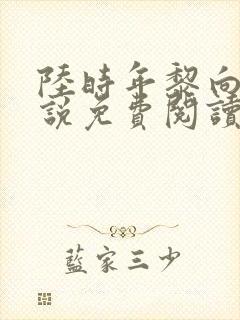 陸時年黎向
說免費閱讀
藍家三少